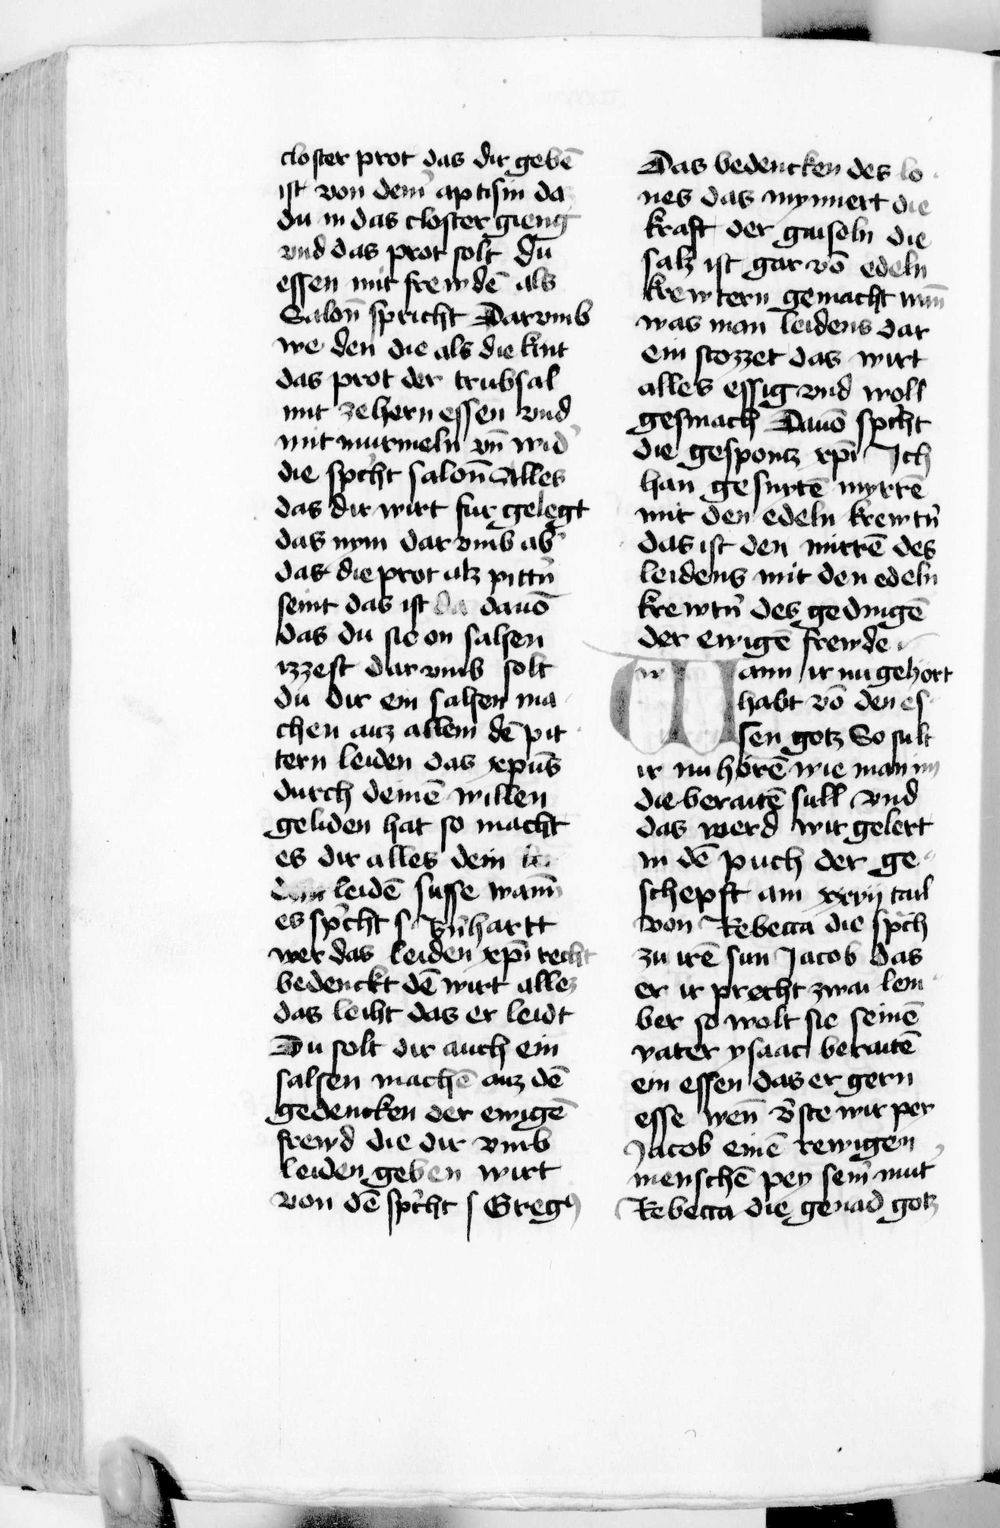 closter prot das dir gebē
ist von deinˀ aptisin da
du in das closter gieng
vnd das prot solt du
essen mit frewdē als
Salon̄ spricht Darvmb
we den die als die kint
das prot der trubsal
mit zehern essen vnd
mit murmeln vn̄ widˀ
die sp̓cht salon̄ Alles
das dir wirt fur gelegt
das nym dar vmb abˀ
das die prot alz pittn̓
seint das ist dauō
das du sie on salsen
izzest dar vmb solt
du dir ein salsen ma
chen auz allem dē pit
tern leiden das xpūs
durch deinē willen
geliden hat so macht
es dir alles dein
leidē susse wann̄
es sp̓cht s Bn̓hartt
wer das leiden xpī recht
bedenckt dē wirt allez
das leiht das er leidt
Du solt dir auch ein
salsen machē auz dē
gedencken der ewigē
frewd die dir vmb
leiden geben wirt
von dē sp̓cht s Gregꝰ
Das bedencken des lo
nes das mynnert die
kraft der gaiseln die
salz ist gar vō edeln
krewtern gemacht wan̄
was man leidens dar
ein stozzet das wirt
alles essig vnd woll
gesmach Dauō sp̓cht
die gespontz xpī Ich
han gesnytē myrrē
mit den edeln krewtn̓
das ist den mirrē des
leidens mit den edeln
krewtn̓ des gedingē
der ewigē frewde
Wann ir nu gehort
habt vō den es
sen gotz So sult
ir nu hörē wie man im
die beraitē sull vnd
das werd wir gelert
in dē puch der ge
schepft am xxvij tail
von Rebecca die sp̓ch
zu irē sun Jacob das
er ir precht zwai lem
ber so wolt sie seinē
vater ysaac beraitē
ein essen das er gern
esse wen̄ v̓ste wir per
Jacob einē rewigen
menschē pey seinˀ mutˀ
Rebecca die genad gotz